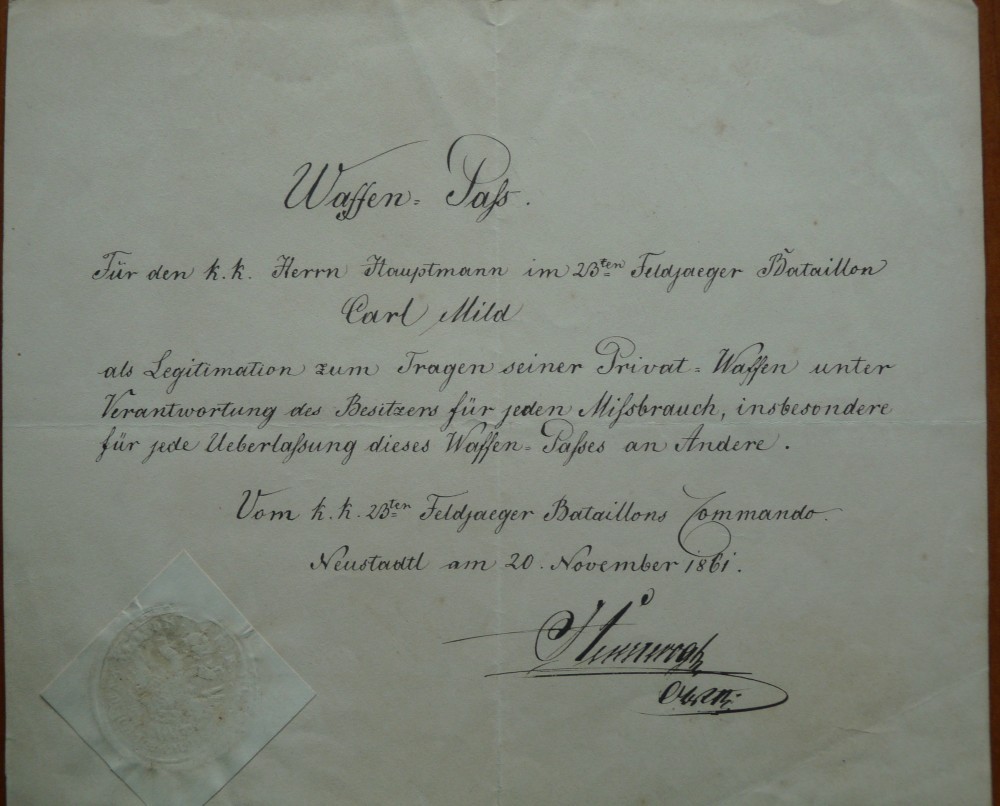 Waffen= Paſs.
Für den k. k. Herrn Hauptmann im 23ten Feldjaeger Bataillon
Carl Mild
als Legitimation zum Tragen seiner Privat=Waffen unter
Verantwortung des Besitzers für jeden Miſsbrauch, insbesondere
für jede Ueberlaſsung dieses Waffen=Paſses an Andere.
Vom k. k. 23ten Feldjaeger Bataillons Commando.
Neustadtl am 20. November 1861.